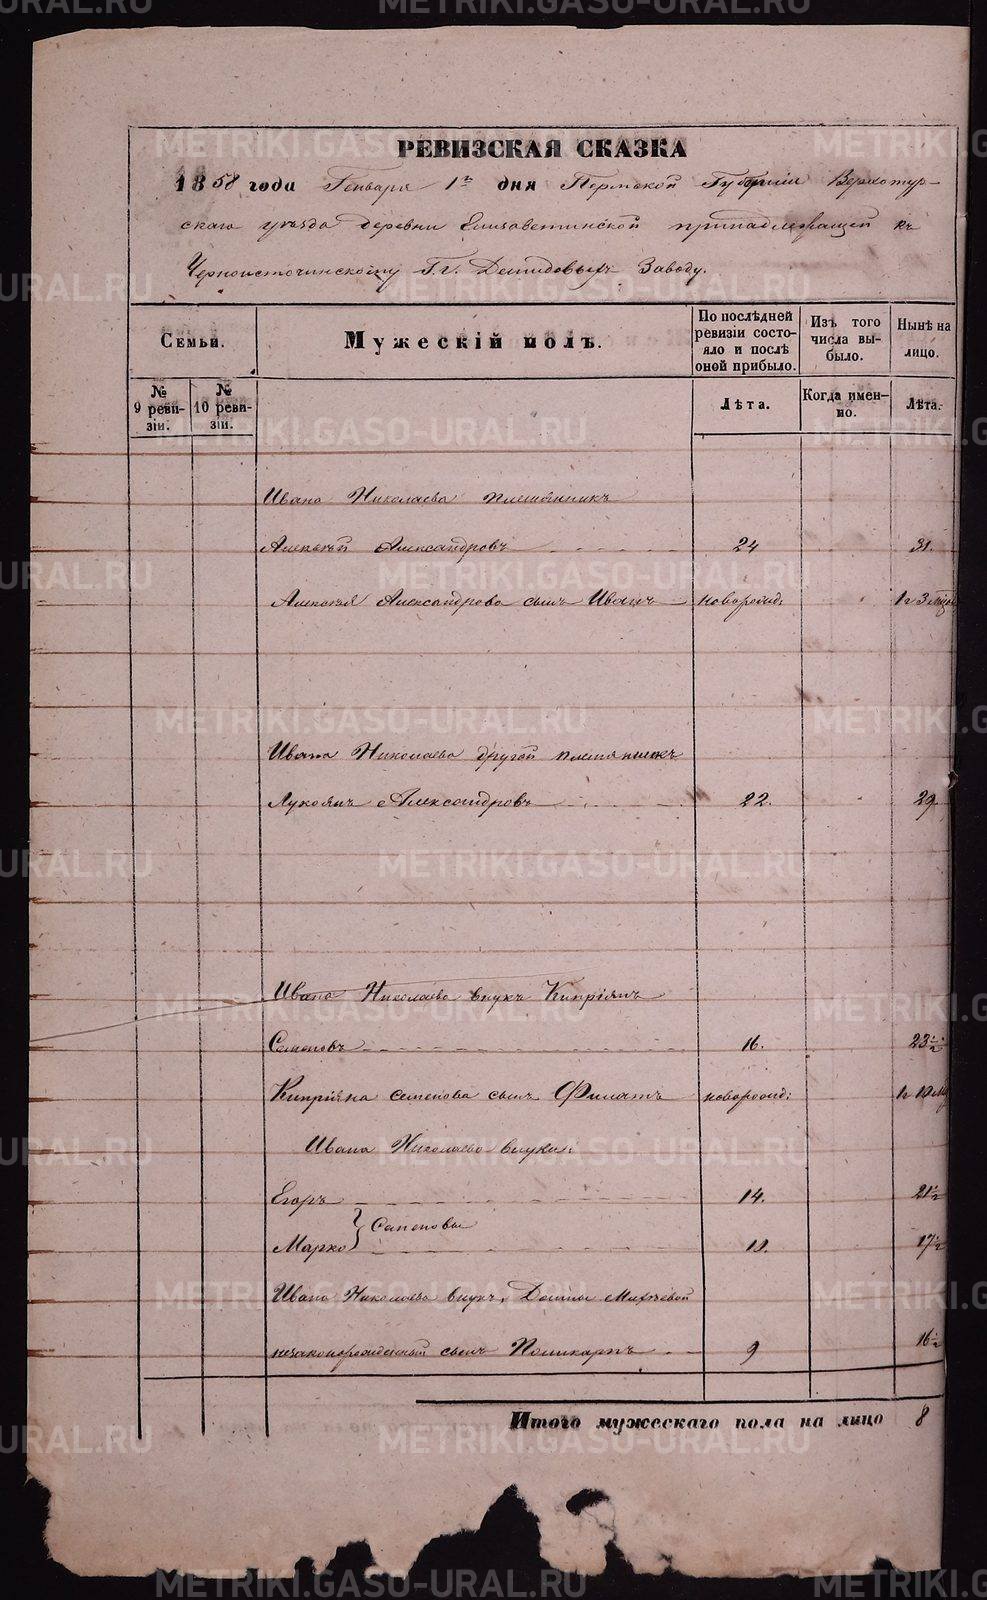 РЕВИЗСКАЯ СКАЗКА
1858 года Генваря 1го дня Пермской Губернии Верхотур-
скаго уѣзда деревни Елизаветинской принадлежащей къ
Черноисточинскому Г.г. Демидовыхъ Заводу.
Семьи.
Мужескій полъ.
По послѣдней ревизіи состо-
яло и послѣ оной прибыло.
Изъ того числа вы-
было.
Нынѣ на лицо.
№ 9 реви-
зіи.
№ 10 реви-
зіи.
Лѣта.
Когда имен-
но.
Лѣта.
Ивана Николаева племянникъ
Алексѣй Александровъ 24 31.
Алексѣя Александрова сынъ Иванъ новорожд: 1 г 3 мѣся
Ивана Николаева другой племянникъ
Лукоянъ Александровъ 22. 29.
Ивана Николаева внукъ Кипріянъ
Семеновъ 16. 23 1/2
Кипріяна Семенова сынъ Филатъ новорожд: 1 г 10 м
Ивана Николаева внуки:
Егоръ 14. 21 1/2
Семеновы
Марко 10. 17 1/2
Ивана Николаева внукъ, Домны
незаконорожденный сынъ Поликарпъ 9 16 1/2
Итого мужескаго пола на лицо 8
METRIKI.GASO-URAL.RU